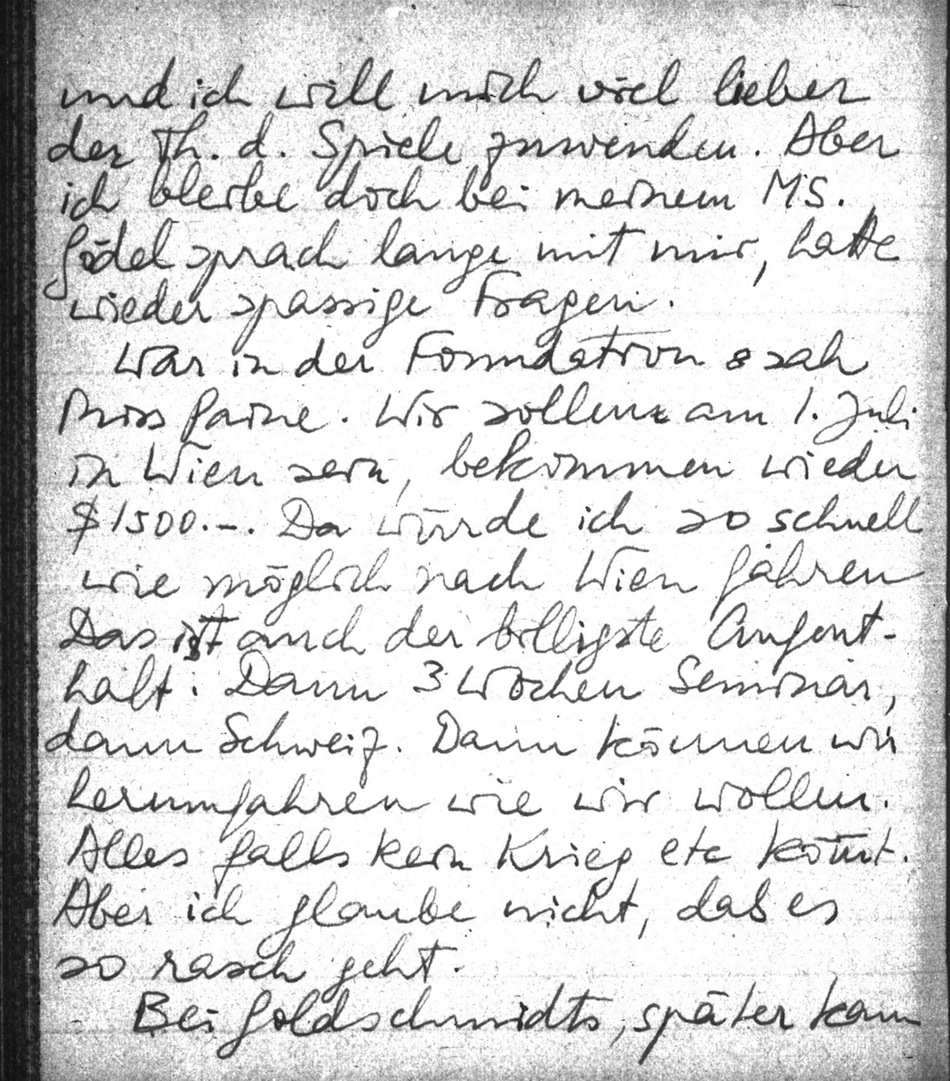 und ich will mich viel lieber
der Th. d. Spiele zuwenden. Aber
ich bleibe doch bei meinem MS.
Gödel sprach lange mit mir, hatte
wieder spassige Fragen.
War in der Foundation & sah
Miss Paine. Wir sollen am 1. Juli
in Wien sein, bekommen wieder
$1500.–. Da würde ich so schnell
wie möglich nach Wien fahren
Das ist auch der billigste Aufent-
halt. Dann 3 Wochen Seminar,
dann Schweiz. Dann können wir
herumfahren wie wir wollen.
Alles falls kein Krieg etc kom̄t.
Aber ich glaube nicht, daß es
so rasch geht.
Bei Goldschmidts, später kam